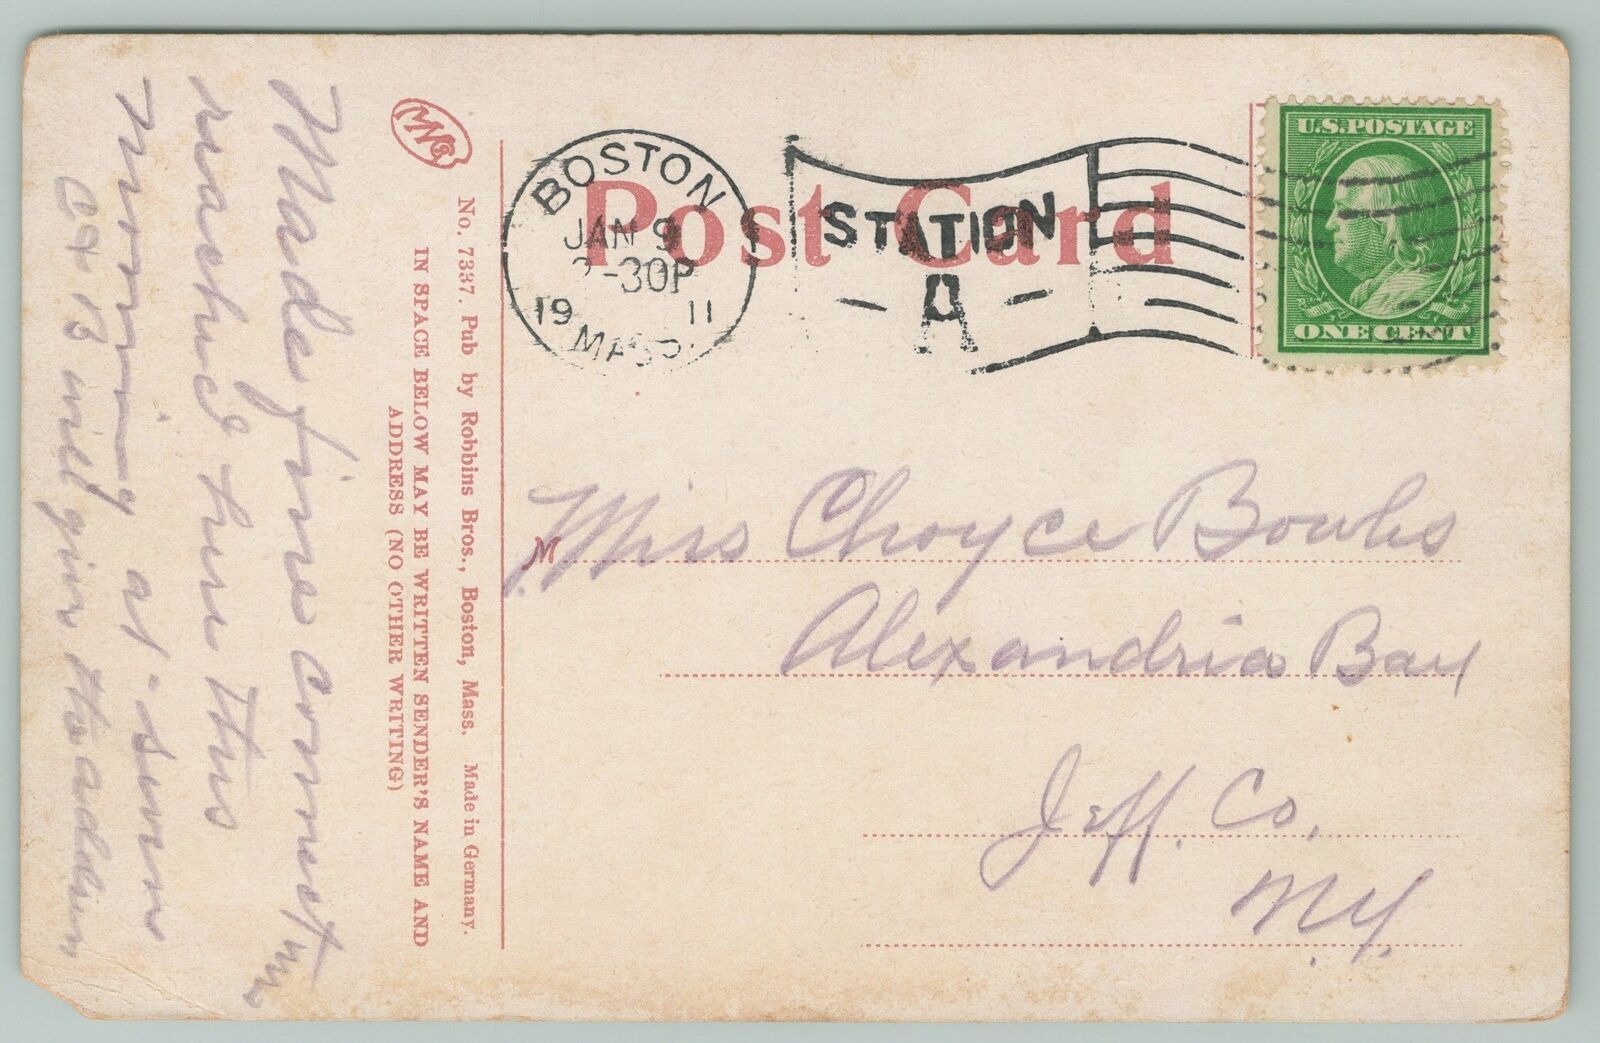 Made fine connection
reached here this
morning at seven
Ex B will give the address
MN Co
No. 7337. Pub by Robbins Bros., Boston, Mass. Made in Germany.
IN SPACE BELOW MAY BE WRITTEN SENDER'S NAME AND
ADDRESS (NO OTHER WRITING)
Post Card
BOSTON
JAN 9
-30P
19 11
MASS
STATION
A
U.S. POSTAGE
ONE CENT
M Miss Choyce Bowles
Alexandria Bay
Jeff. Co.
N.Y.